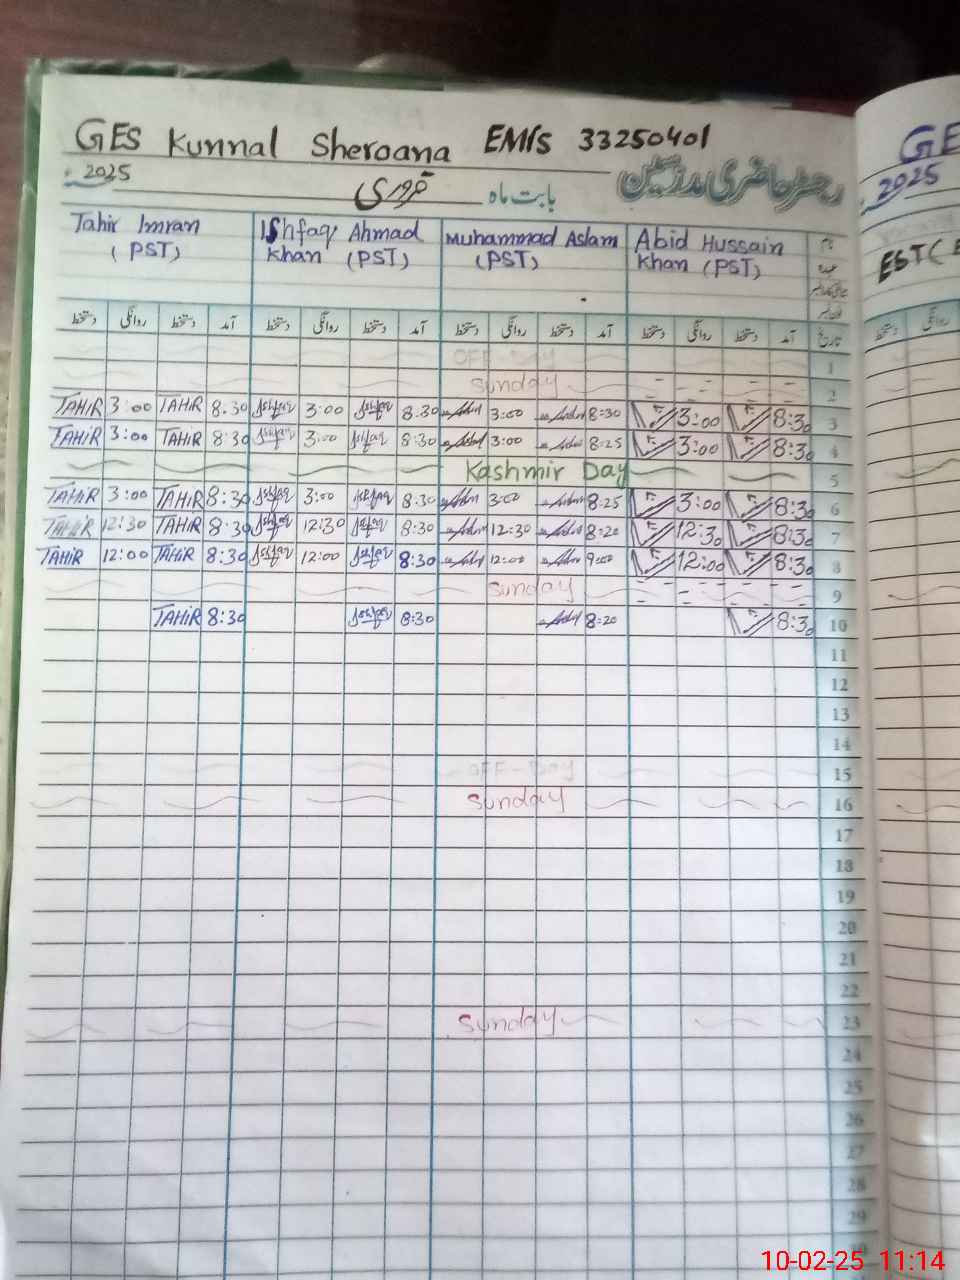 GES Kunnal Sheroana EMIS 33250401
GE
رجسٹر حاضری مدرسین
بابت ماہ فروری 2025
2025
Tahir Imran (PST)
Ishfaq Ahmad Khan (PST)
Muhammad Aslam (PST)
Abid Hussain Khan (PST)
نام
عہدہ
EST(
دستخط روانگی دستخط آمد دستخط روانگی دستخط آمد دستخط روانگی دستخط آمد دستخط روانگی دستخط آمد تاریخ
دستخط روانگی
OFF-DAY 1
Sunday 2
TAHIR 3:00 TAHIR 8:30 Ishfaq 3:00 Ishfaq 8:30 Aslam 3:00 Aslam 8:30 3:00 8:30 3
TAHIR 3:00 TAHIR 8:30 Ishfaq 3:00 Ishfaq 8:30 Aslam 3:00 Aslam 8:25 3:00 8:30 4
Kashmir Day 5
TAHIR 3:00 TAHIR 8:30 Ishfaq 3:00 Ishfaq 8:30 Aslam 3:00 Aslam 8:25 3:00 8:30 6
TAHIR 12:30 TAHIR 8:30 Ishfaq 12:30 Ishfaq 8:30 Aslam 12:30 Aslam 8:20 12:30 8:30 7
TAHIR 12:00 TAHIR 8:30 Ishfaq 12:00 Ishfaq 8:30 Aslam 12:00 Aslam 9:00 12:00 8:30 8
Sunday 9
TAHIR 8:30 Ishfaq 8:30 Aslam 8:20 8:30 10
11
12
13
14
OFF-Day 15
Sunday 16
17
18
19
20
21
22
Sunday 23
24
25
26
27
28
29
10-02-25 11:14